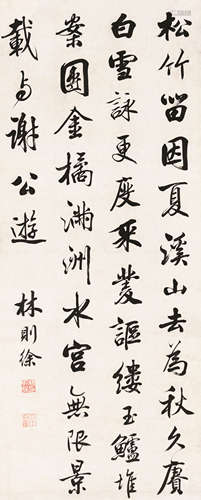 松竹留因夏溪山去為秋久賡
白雪詠更度采菱謳縷玉鱸堆
案團金橘滿洲水宮無限景
載與謝公遊
林則徐